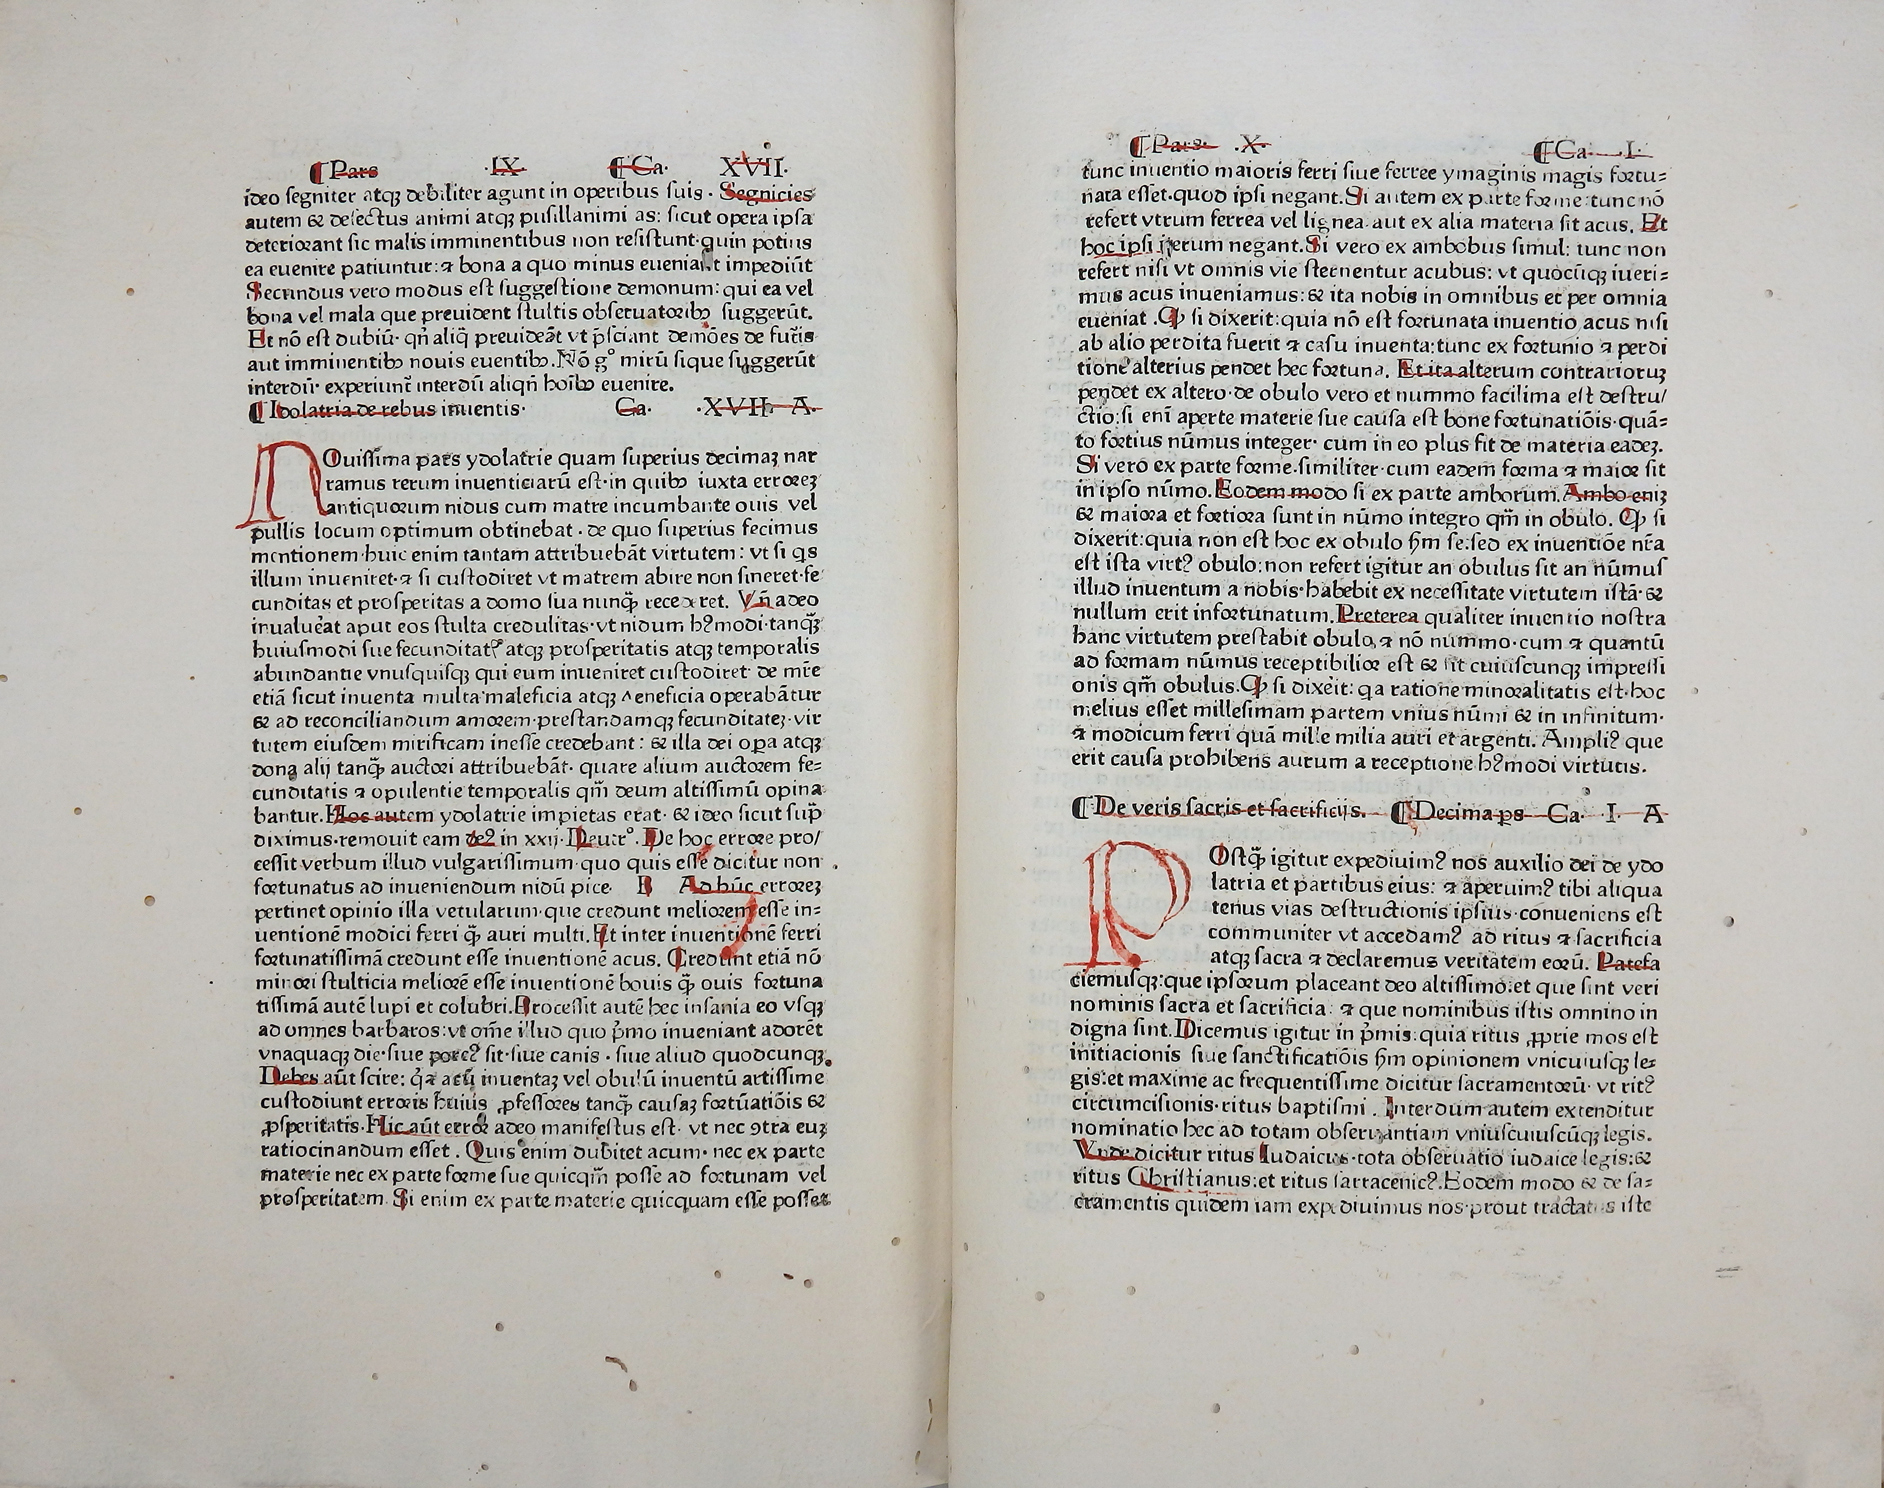 ¶Pars ·IX· ¶Ca· XVII·
ideo segniter atqꝫ debiliter agunt in operibus suis · Segnicies
autem & defectus animi atqꝫ pusillanimi as: sicut opera ipsa
deteriorant sic malis imminentibus non resistunt·quin potius
ea euenire patiuntur:⁊ bona a quo minus eueniant impediūt
Secundus vero modus est suggestione demonum: qui ea vel
bona vel mala que preuident stultis obseruatoribꝫ suggerūt.
Et nō est dubiū· qn̄ aliq̄ preuideāt vt p̄sciant demōes de fut̄is
aut imminentibꝫ nouis euentibꝫ.Nō g° mirū sique suggerūt
interdū· experiunt̄ interdū aliqn̄ hoībꝫ euenire.
¶Idolatria de rebus inuentis· Ca· ·XVII· A·
NOuissima pars ydolatrie quam superius decimaꝫ nar
ramus rerum inuenticiarū est·in quibꝫ iuxta erroreꝫ
antiquorum nidus cum matre incumbante ouis vel
pullis locum optimum obtinebat · de quo superius fecimus
mentionem·huic enim tantam attribuebāt virtutem : vt si qs
illum inueniret·⁊ si custodiret vt matrem abire non sineret·fe
cunditas et prosperitas a domo sua nunq̄ recederet. Vn̄ adeo
inualuerat aput eos stulta credulitas·vt nidum hꝰmodi·tanq̄ꝫ
huiusmodi sue fecunditatꝭ atqꝫ prosperitatis atqꝫ temporalis
abundantie vnusquisqꝫ qui eum inueniret custodiret· de mr̄e
etiā sicut inuenta multa maleficia atqꝫ veneficia operabātur
& ad reconciliandum amorem·prestandamqꝫ fecunditateꝫ·vir
tutem eiusdem mirificam inesse credebant : & illa dei oꝑa atqꝫ
dona alij tanq̄ auctori attribuebāt· quare alium auctorem fe=
cunditatis ⁊ opulentie temporalis qm̄ deum altissimū opina
bantur.Hoc autem ydolatrie impietas erat· & ideo sicut sup̄
diximus·remouit eam deꝰ in xxij· Deutr°. De hoc errore pro/
cessit verbum illud vulgarissimum·quo quis esse dicitur non
fortunatus ad inueniendum nidū pice· B Ad hūc erroreꝫ
pertinet opinio illa vetularum·que credunt meliorem esse in=
uentionē modici ferri q̄ auri multi.Et inter inuentionē ferri
fortunatissimā credunt esse inuentionē acus. Credunt etiā nō
minori stulticia meliorē esse inuentionē bouis q̄ ouis fortuna
tissimā autē lupi et colubri.Processit autē hec insania eo vsqꝫ
ad omnes barbaros:vt om̄e illud quo p̄mo inueniant adorēt
vnaquaqꝫ die·siue porcꝰ sit·siue canis · siue aliud quodcunqꝫ.
Debes aūt scire: qa acū inuentaꝫ vel obulū inuentū artissime
custodiunt erroris huius ꝓfessores tanq̄ causaꝫ fortūatiōis &
ꝓsperitatis·Hic aūt error adeo manifestus est· vt nec ꝯtra euꝫ
ratiocinandum esset . Quis enim dubitet acum· nec ex parte
materie nec ex parte forme sue quicqm̄ posse ad fortunam vel
prosperitatem. Si enim ex parte materie quicquam esse posset
¶Pars· ·X· ¶Ca· ·I·
tunc inuentio maioris ferri siue ferree ymaginis magis fortu=
nata esset·quod ipsi negant.Si autem ex parte forme:tunc nō
refert vtrum ferrea vel lignea·aut ex alia materia sit acus. Et
hoc ipsi iterum negant.Si vero ex ambobus simul: tunc non
refert nisi vt omnis vie sternentur acubus: vt quocūqꝫ iueri=
mus acus inueniamus:& ita nobis in omnibus et per omnia
eueniat .Qꝫ si dixerit:quia nō est fortunata inuentio acus nisi
ab alio perdita fuerit ⁊ casu inuenta:tunc ex fortunio ⁊ perdi
tione alterius pendet hec fortuna. Et ita alterum contrarioruꝫ
pendet ex altero·de obulo vero et nummo facilima est destru/
ctio:si eni aperte materie sue causa est bone fortunatiōis·quā=
to fortius nūmus integer· cum in eo plus sit de materia eadeꝫ.
Si vero ex parte forme·similiter·cum eadem forma ⁊ maior sit
in ipso nūmo.Eodem modo si ex parte amborum.Ambo eniꝫ
& maiora et fortiora sunt in nūmo integro qm̄ in obulo. Qꝫ si
dixerit:quia non est hoc ex obulo ẜm se:sed ex inuentiōe nr̄a
est ista virtꝰ obulo:non refert igitur an obulus sit an nūmus
illud inuentum a nobis·habebit ex necessitate virtutem istā·&
nullum erit infortunatum.Preterea qualiter inuentio nostra
hanc virtutem prestabit obulo,⁊ nō nummo·cum ⁊ quantū
ad formam nūmus receptibilior est & sit cuiuscunqꝫ impressi
onis qm̄ obulus.Qꝫ si dixerit: qa ratione minoralitatis est·hoc
melius esset millesimam partem vnius nūmi & in infinitum·
⁊ modicum ferri quā mille milia auri et argenti. Ampliꝰ que
erit causa prohibens aurum a receptione hꝰmodi virtutis.
¶De veris sacris et sacrificijs. ¶Decima ps Ca· I· A
POstq̄ igitur expediuimꝰ nos auxilio dei de ydo
latria et partibus eius: ⁊ aperuimꝰ tibi aliqua
tenus vias destructionis ipsius·conueniens est
communiter vt accedamꝰ ad ritus ⁊ sacrificia
atqꝫ sacra ⁊ declaremus veritatem eorū. Patefa
ciemusqꝫ:que ipsorum placeant deo altissimo:et que sint veri
nominis sacra et sacrificia: ⁊ que nominibus istis omnino in
digna sint.Dicemus igitur in p̄mis:quia ritus ꝓprie mos est
initiacionis siue sanctificatiōis ẜm opinionem vnicuiusqꝫ le=
gis:et maxime ac frequentissime dicitur sacramentorū· vt ritꝰ
circumcisionis·ritus baptismi . Interdum autem extenditur
nominatio hec ad totam obseruantiam vniuscuiuscūqꝫ legis.
Vnde dicitur ritus Iudaicus·tota obseruatio iudaice legis:&
ritus Christianus:et ritus sarracenicꝰ.Eodem modo & de sa=
cramentis quidem iam expediuimus nos·prout tractatus iste